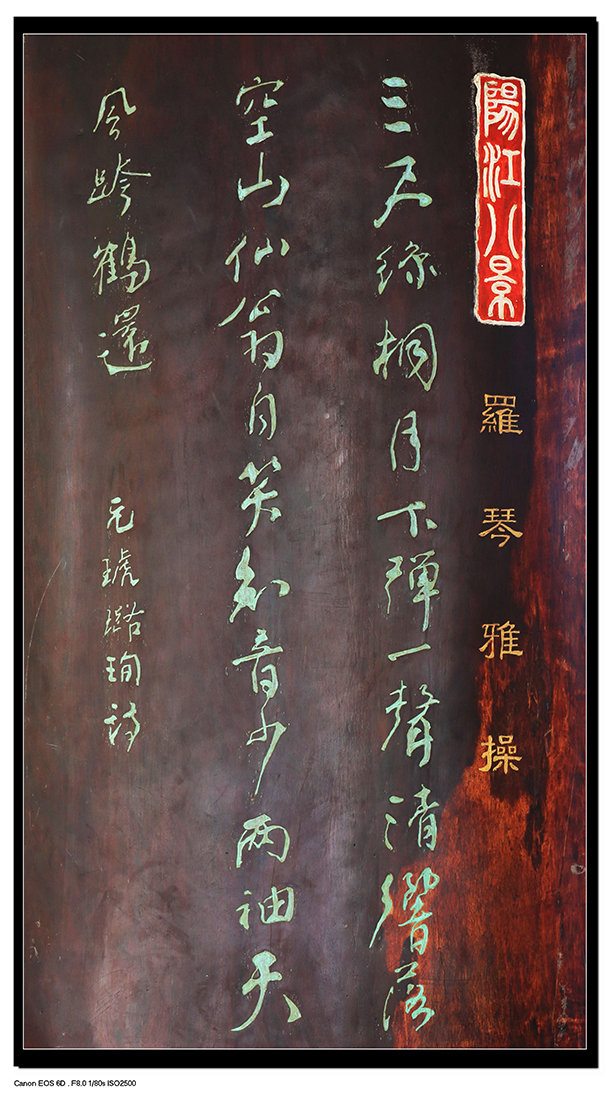 陽江八景
羅琴雅操
三尺絲桐月下彈一聲清響落
空山仙翁自笑知音少两袖天
風跨鶴還
元琥璐珣詩
Canon EOS 6D . F8.0 1/80s ISO2500